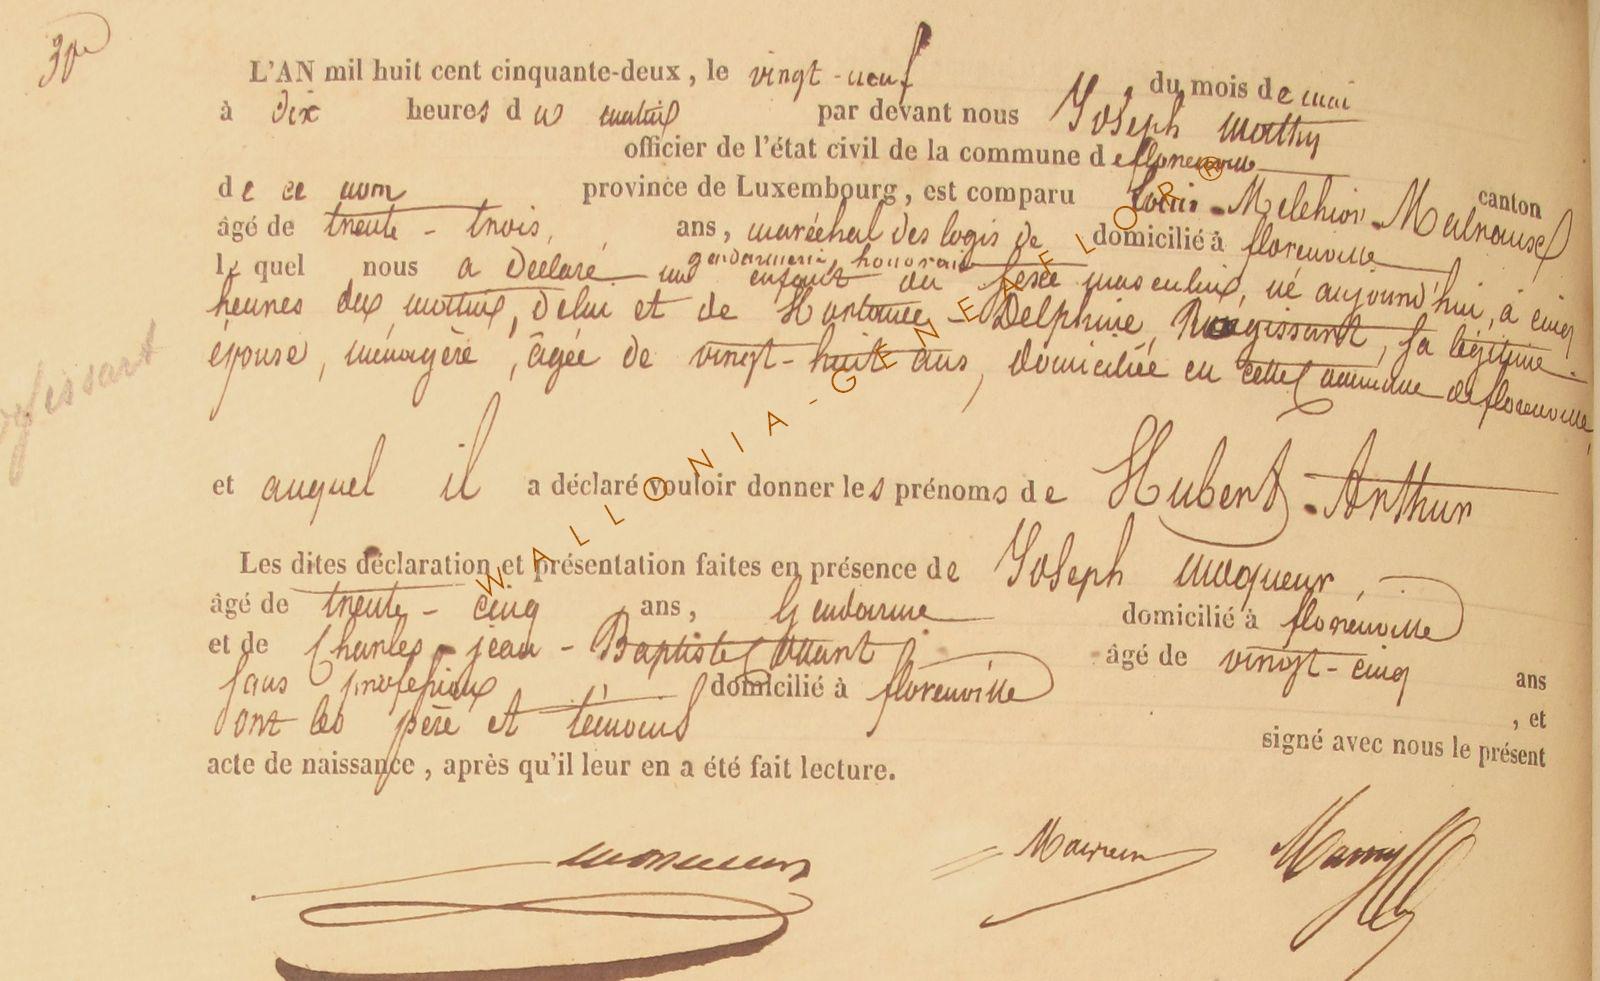 L'AN mil huit cent cinquante-deux, le vingt-neuf du mois de mai
à dix heures du matin par devant nous Joseph Mathy
officier de l'état civil de la commune de florenville
de ce nom province de Luxembourg, est comparu Louis-Melchior canton
âgé de trente-trois, ans, maréchal des logis de domicilié à florenville
gendarmerie honoraire
lequel nous a déclaré un enfant du sexe masculin, né aujourd'hui, à cinq
heures du matin, de lui et de Delphine, sa légitime
épouse, ménagère, âgée de vingt-huit ans, domiciliée en cette commune de florenville,
et auquel il a déclaré vouloir donner les prénoms de Hubert-Arthur
Les dites déclaration et présentation faites en présence de Joseph
âgé de trente-cinq ans, Gendarme domicilié à florenville
et de Charles-jean-Baptiste âgé de vingt-cinq ans
sans profession domicilié à florenville , et
ont les père et témoins signé avec nous le présent
acte de naissance, après qu'il leur en a été fait lecture.
WALLONIA-GENEAFLOR®